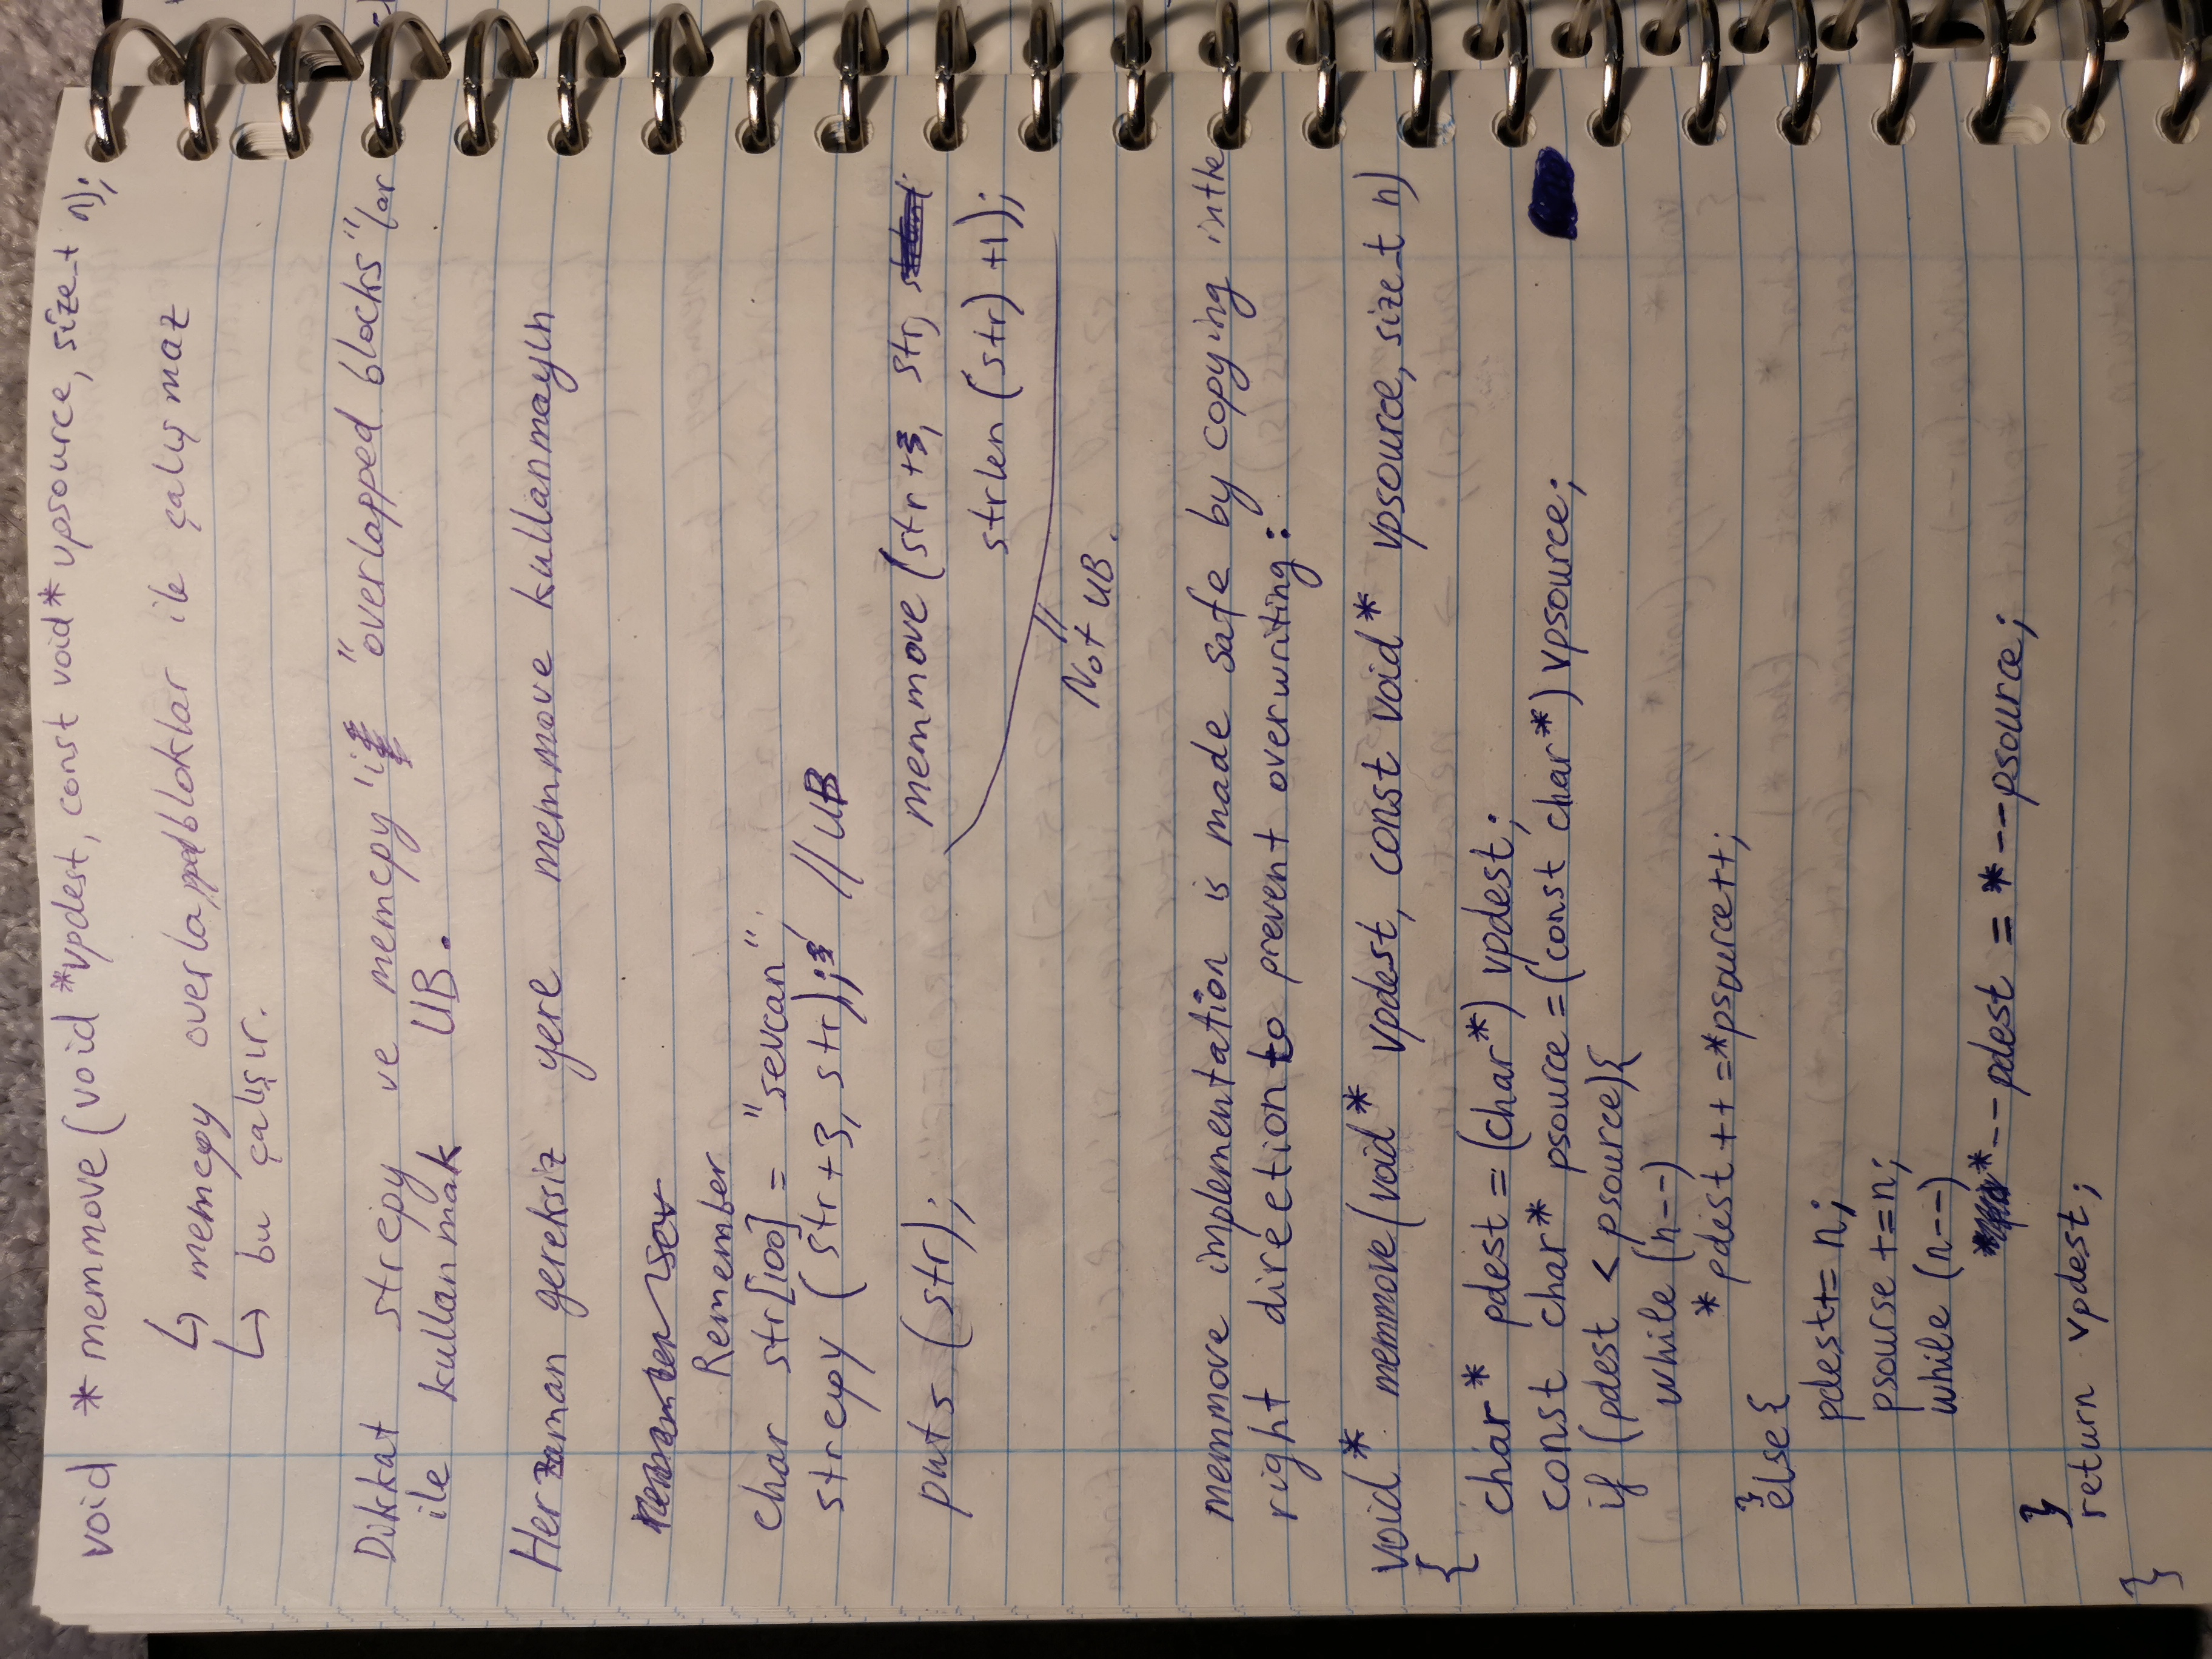 void * memmove (void *vpdest, const void* vpsource, size_t n);
↳ memcpy overlapped bloklar ile çalışmaz
↳ bu çalışır.
Dikkat strcpy ve memcpy'i "overlapped blocks"lar
ile kullanmak UB.
Her zaman gereksiz yere memmove kullanmayın
Remember
char str[100] = "sevcan";
strcpy (str+3, str); // UB
puts (str);
memmove (str+3, str,
strlen (str) +1);
//
Not UB.
memmove implementation is made safe by copying in the
right direction to prevent overwriting:
void* memmove(void* vpdest, const void* vpsource, size_t n)
{
char* pdest = (char*) vpdest;
const char* psource = (const char*) vpsource;
if (pdest < psource){
while (n--)
*pdest++ = *psource++;
}
else{
pdest+= n;
psourse +=n;
while (n--)
*--pdest = *--psource;
}
return vpdest;
}